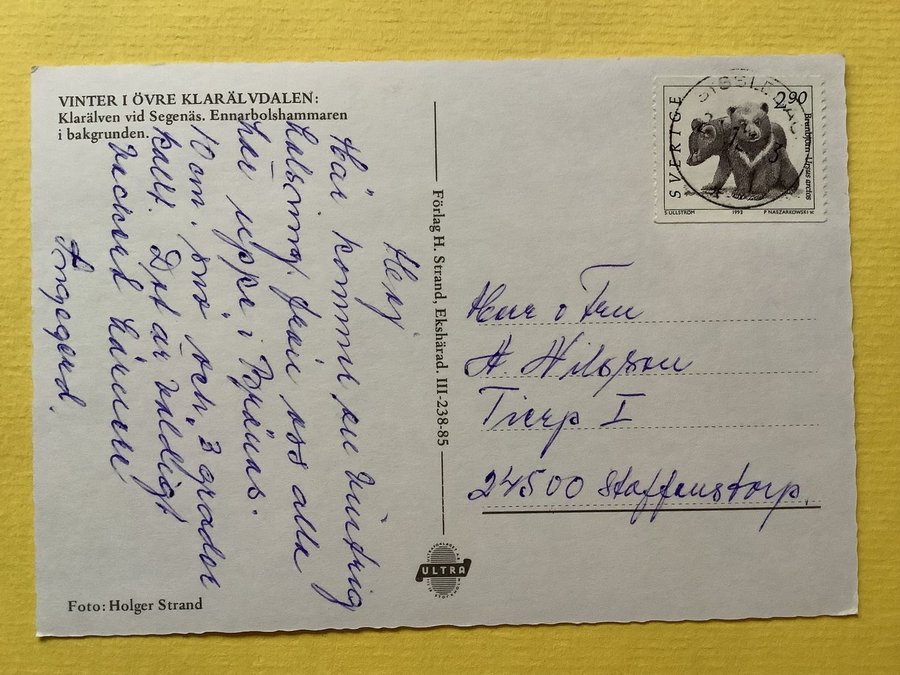 VINTER I ÖVRE KLARÄLVDALEN:
Klarälven vid Segenäs. Ennarbolshammaren
i bakgrunden.
Hej
Här kommer en vintrig
hälsning från oss alla
här uppe i Bränäs.
10 cm. snö och, 3 grader
kallt. Det är väldigt
vackert härinne
Ingegerd.
Foto: Holger Strand
Förlag H. Strand, Ekshärad. III-238-85
ULTRA
SVERIGE
2,90
Brunbjörn - Ursus arctos
S ULLSTRÖM 1993 P NASZARKOWSKI sc
Herr o Fru
A. Nilsson
Tirup I
24500 Staffanstorp.